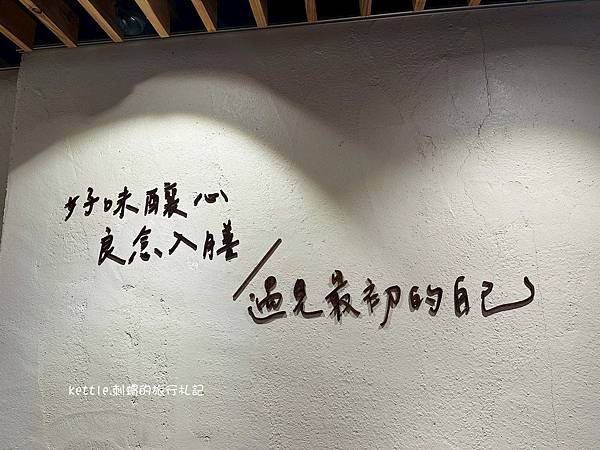 好味釀心
良念入膳
遇見最初的自己
kettle.刺蝟的旅行札記